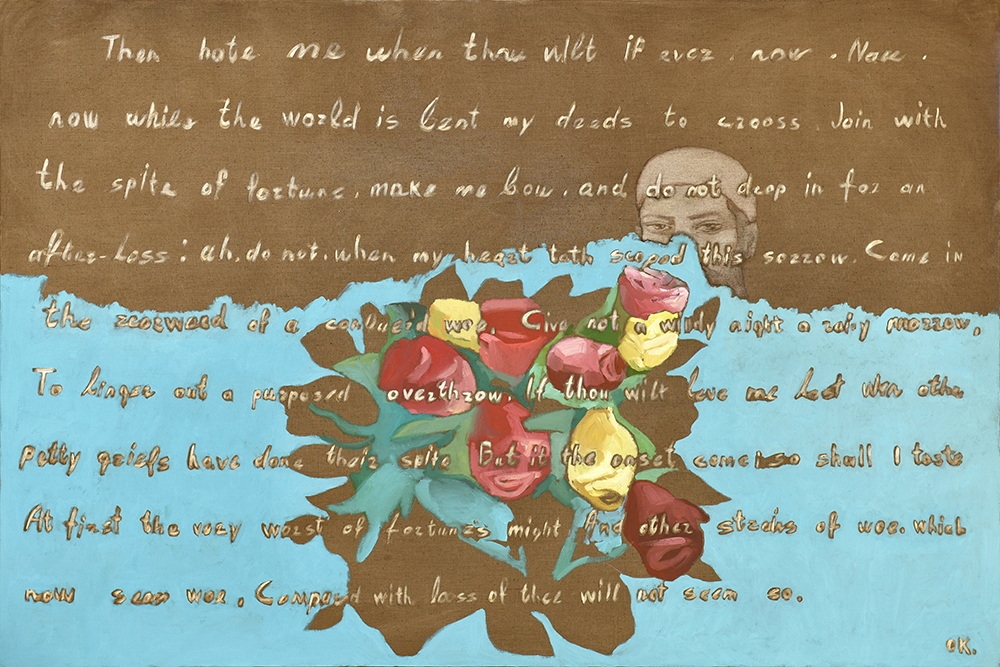 Then hate me when thou wilt if ever. now. Now.
now whiles the world is bent my deeds to crooss. Join with
the spite of fortune. make me bow. and do not drop in for an
after-loss: ah. do not. when my heart toth scoped this sorrow. Come in
the rearward of a conquered woe. Give not a windy night a rainy morrow,
To linger out a purposed overthrow. If thou wilt leve me last when othe
petty griefs have done their spite But it the onset come so shall I taste
At first the very worst of fortune's might And other strains of woe. which
now seem woe. Compared with loss of thee will not seem so.
OK.